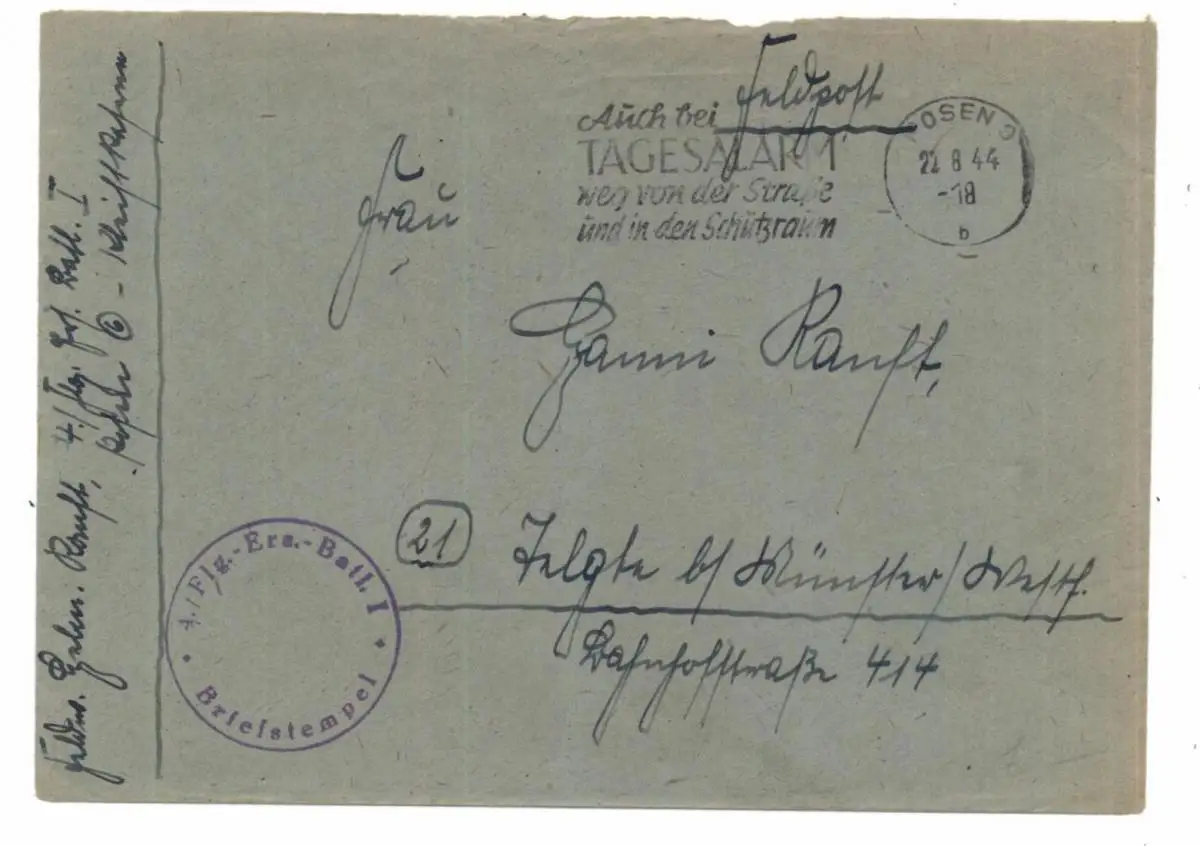 Feldpost
Auch bei
TAGESALARM
weg von der Straße
und in den Schutzraum
POSEN
22 8 44
-18
b
Frau
Hanni Ranft,
21
Telgte b/ Münster/Westf.
Bahnhofstraße 414
4./Flg.-Ers.-Batl. I
Briefstempel
Ranft, 4./Flg. Ers. Batl. I
Posen